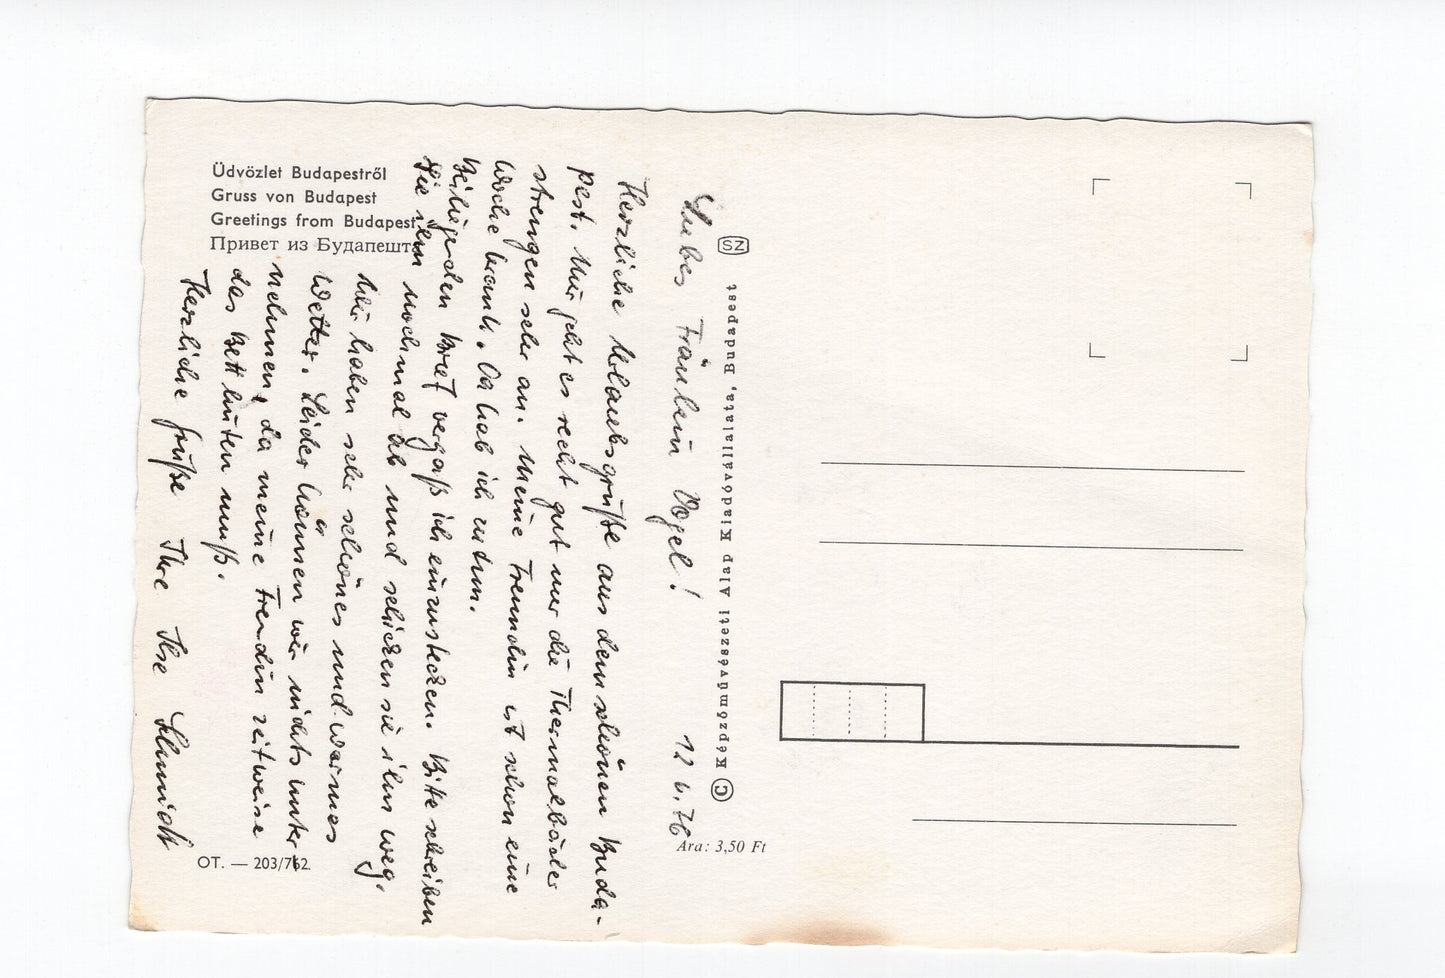 Üdvözlet Budapestről
Gruss von Budapest
Greetings from Budapest
Привет из Будапешта
SZ
© Képzőművészeti Alap Kiadóvállalata, Budapest
12.6.76
Liebes Fräulein Vogel!
Herzliche Urlaubsgrüße aus dem schönen Buda-
pest. Mir geht es recht gut nur die Thermalbäder
strengen sehr an. Meine Freundin ist schon eine
Woche krank. Da hab ich zu tun.
Beiliegenden Brief vergaß ich einzustecken. Bitte schreiben
Sie ihn nochmal ab und schicken sie ihn weg.
Wir haben sehr schönes und warmes
Wetter. Leider können wir nichts unter
nehmen, da meine Freundin zeitweise
das Bett hüten muß.
Herzliche Grüße Ihre Ilse Schmidt
OT. — 203/762
Ára: 3,50 Ft